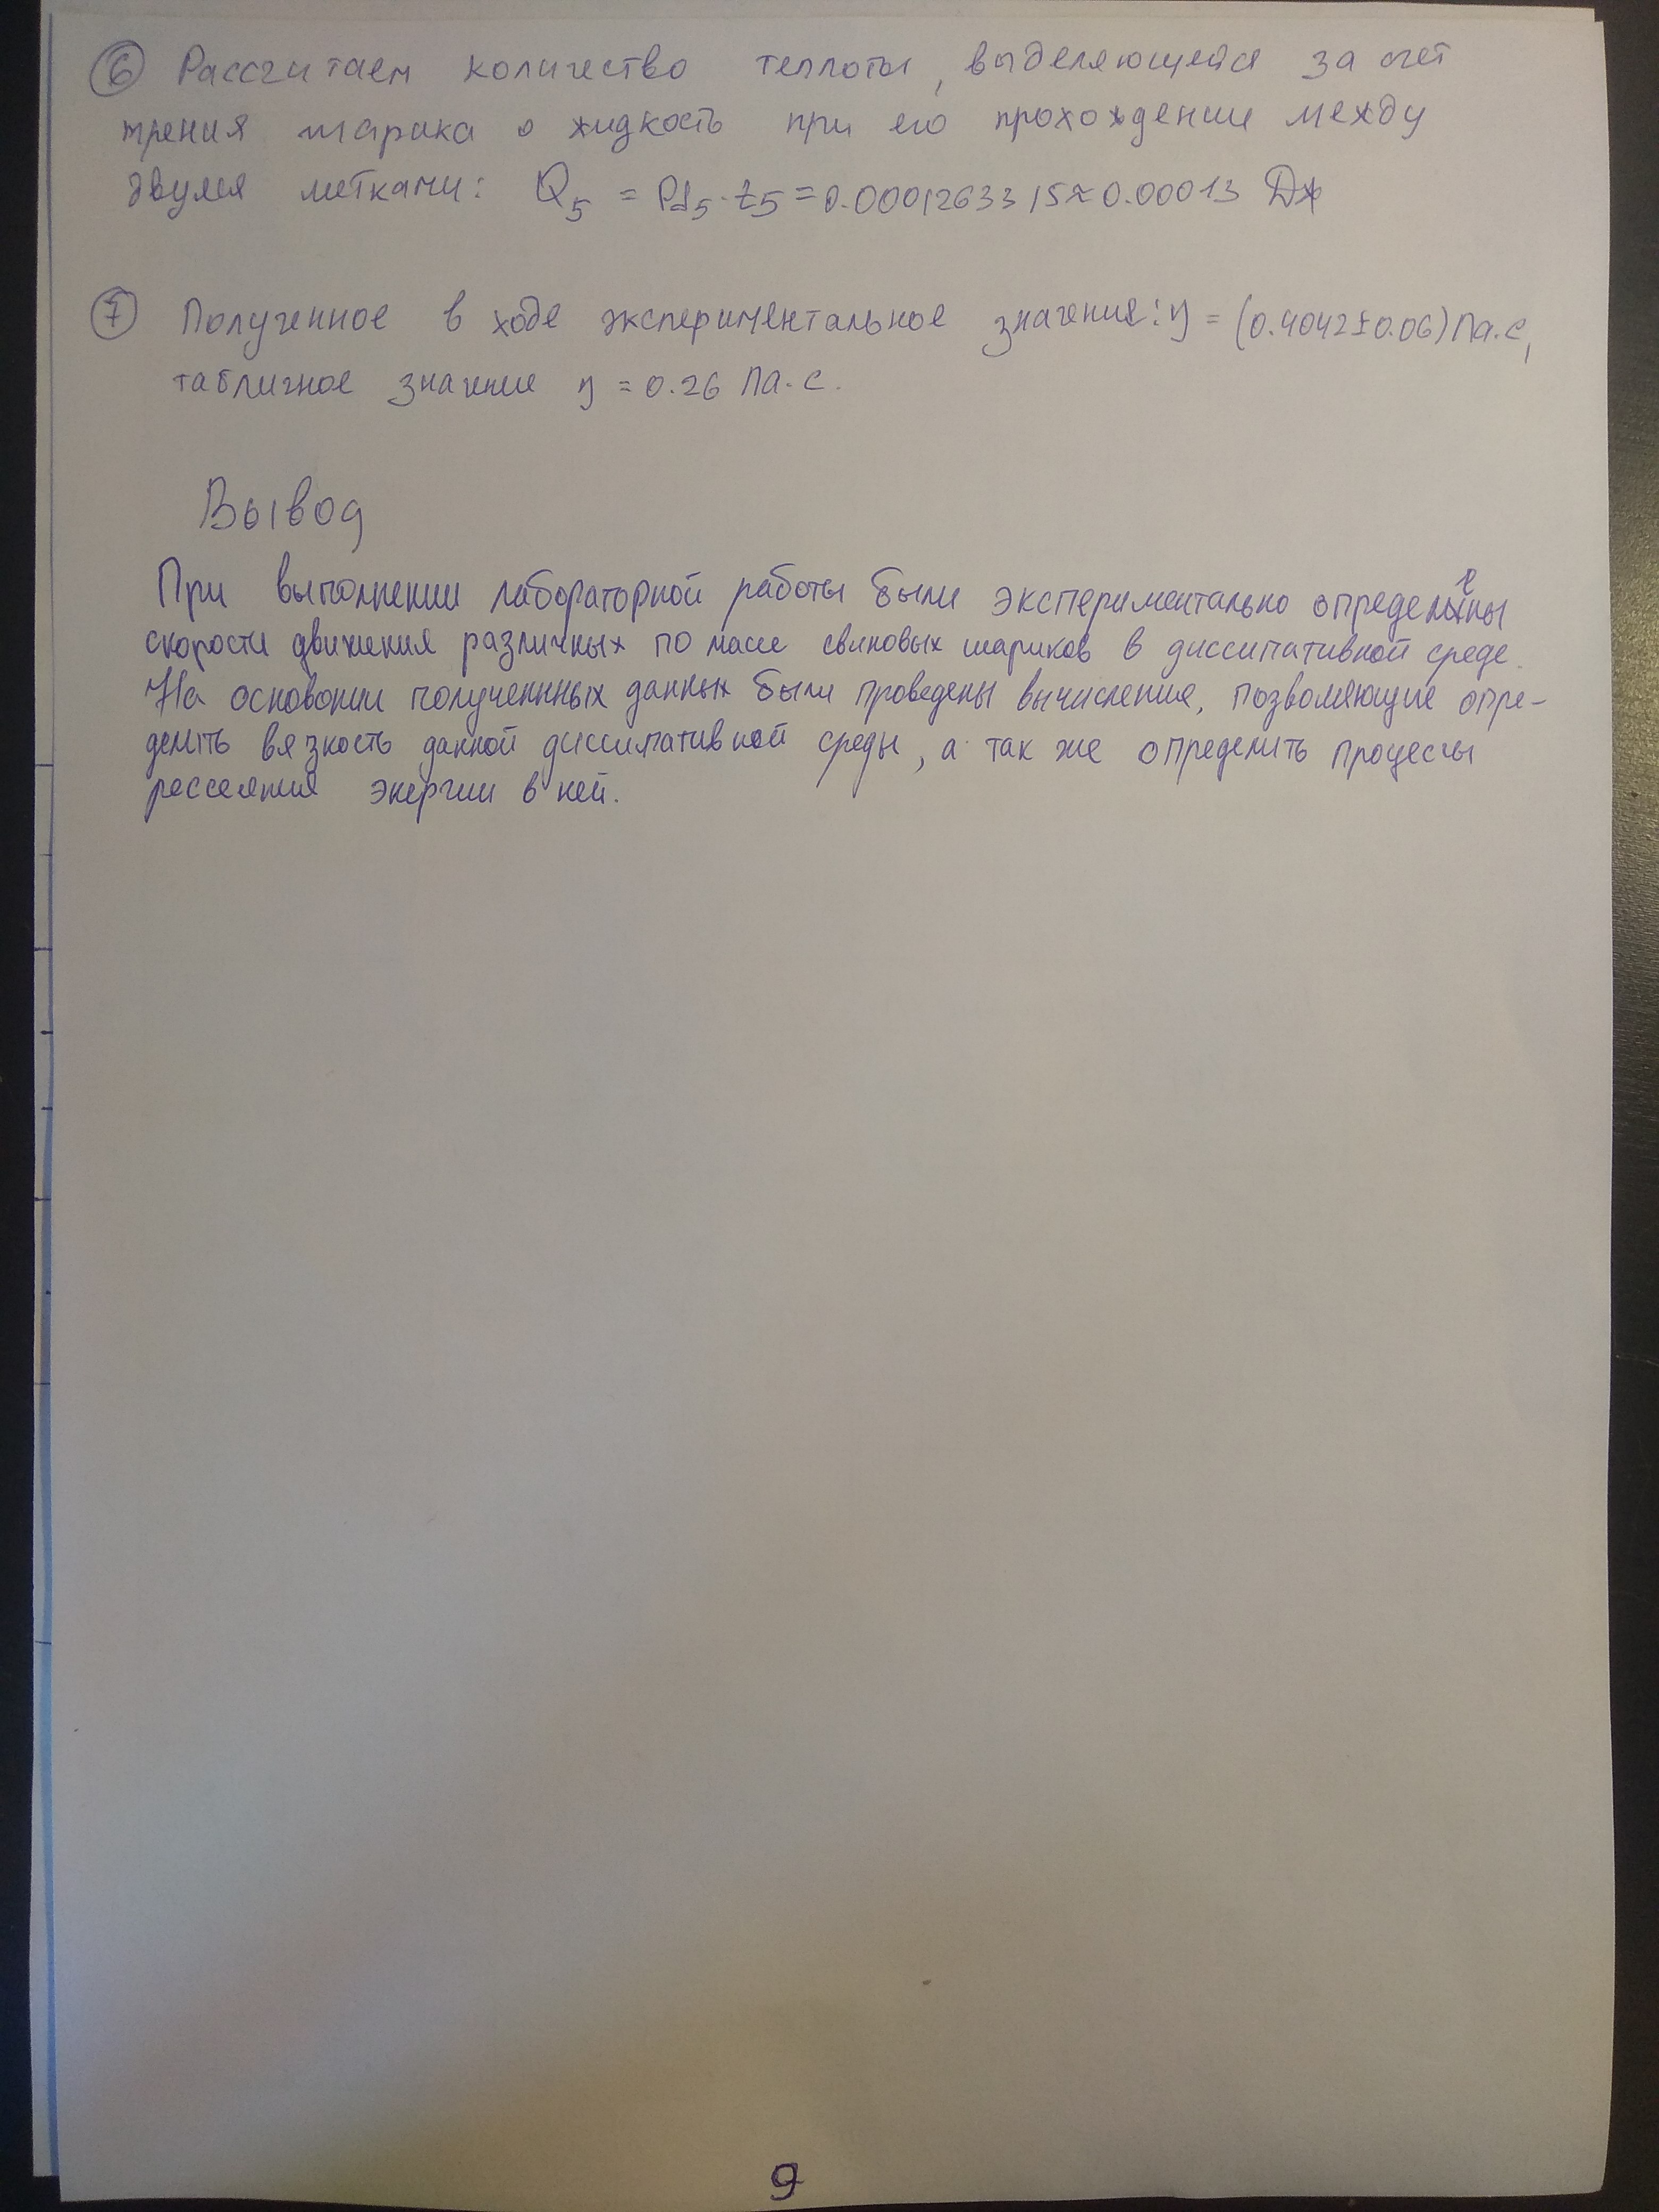 6 Рассчитаем количество теплоты, выделяющейся за счет
трения шарика о жидкость при его прохождении между
двумя метками: Q5 = Pd5 · t5 = 0.0001263315 ≈ 0.00013 Дж
7 Полученное в ходе экспериментальное значения: η = (0.4042 ± 0.06) Па·с,
табличное значение η = 0.26 Па·с.
Вывод
При выполнении лабораторной работы были экспериментально определены
скорости движения различных по массе свиновых шариков в диссипативной среде.
На основонии полученнных данных были проведены вычисления, позволяющие опре-
делить вязкость данной диссипативной среды, а так же определить процессы
рессеяния энергии в ней.
9